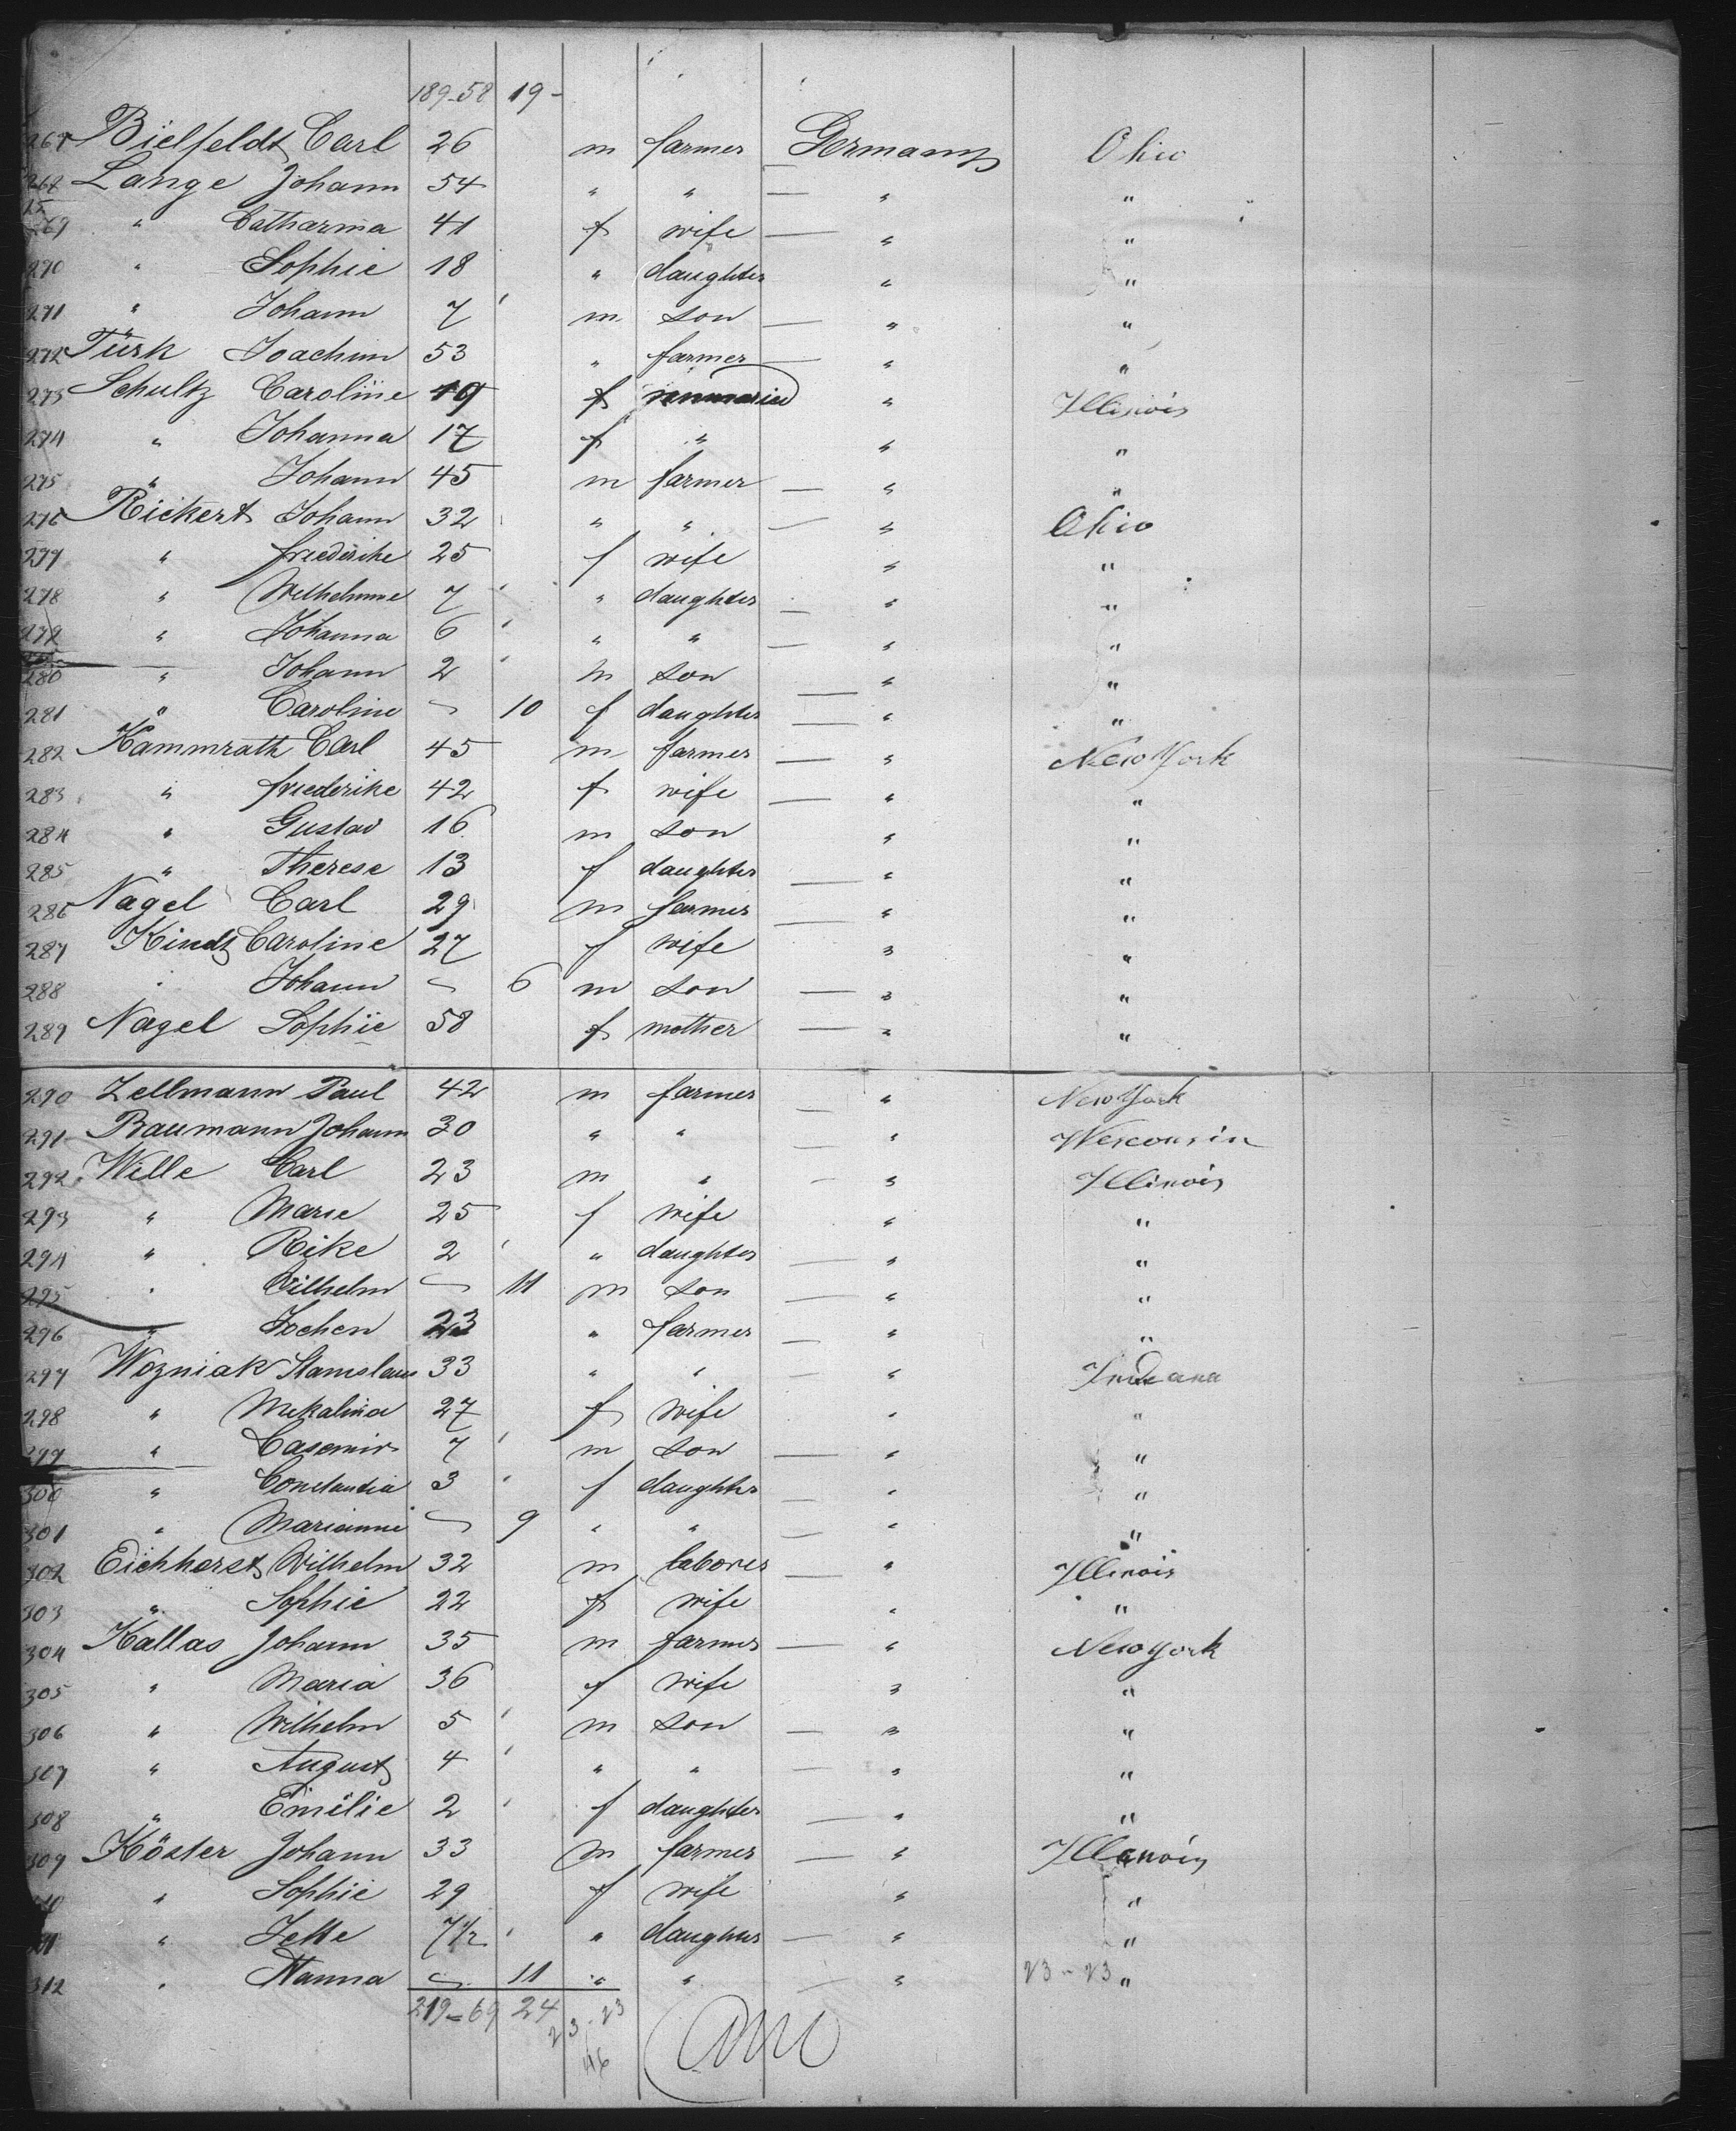 189-58 19-
267 Bielfeldt Carl 26 m farmer Germany Ohio
268 Lange Johann 54 " " — " "
269 " Catharina 41 f wife — " "
270 " Sophie 18 " daughter " "
271 " Johann 7 ' m son — " "
272 Türk Joachim 53 " farmer — " "
273 Schultz Caroline 19 f unmaried " Illinois
274 " Johanna 17 f " " "
275 " Johann 45 m farmer — " "
276 Rickert Johann 32 " " — " Ohio
277 " friederike 25 f wife " "
278 " Wilhelmine 7 ' " daughter — " "
279 " Johanna 6 ' " " — " "
280 " Johann 2 ' m son — " "
281 " Caroline 10 f daughter — " "
282 Kammrath Carl 45 m farmer — " New York
283 " friederike 42 f wife — " "
284 " Gustav 16 m son " "
285 " Therese 13 f daughter — " "
286 Nagel Carl 29 m farmer — " "
287 Kindt Caroline 27 f wife " "
288 " Johann 6 m son — " "
289 Nagel Sophie 58 f mother — " "
290 Zellmann Paul 42 m farmer — " New York
291 Baumann Johann 30 " " — " Wesconsin
292 Wille Carl 23 m " — " Illinois
293 " Marie 25 f wife " "
294 " Rike 2 ' " daughter — " "
295 " Wilhelm 11 m son — " "
296 " Jochen 23 " farmer — " "
297 Wozniak Stanislaus 33 " " — " Indiana
298 " Mekalina 27 f wife " "
299 " Casemir 7 ' m son — " "
300 " Constantia 3 ' f daughter — " "
301 " Marianne 9 " " — " "
302 Eichhorst Wilhelm 32 m laborer — " Illinois
303 " Sophie 22 f wife " "
304 Kallas Johann 35 m farmer — " New York
305 " Maria 36 f wife " "
306 " Wilhelm 5 ' m son — " "
307 " August 4 ' " " — " "
308 " Emilie 2 ' f daughter — " "
309 Köster Johann 33 m farmer — " Illinois
310 " Sophie 29 f wife " "
311 " Jette 7 1/2 ' " daughter — " "
312 " Hanna 11 " " — " 23-23 "
219-69 24 23-23
46